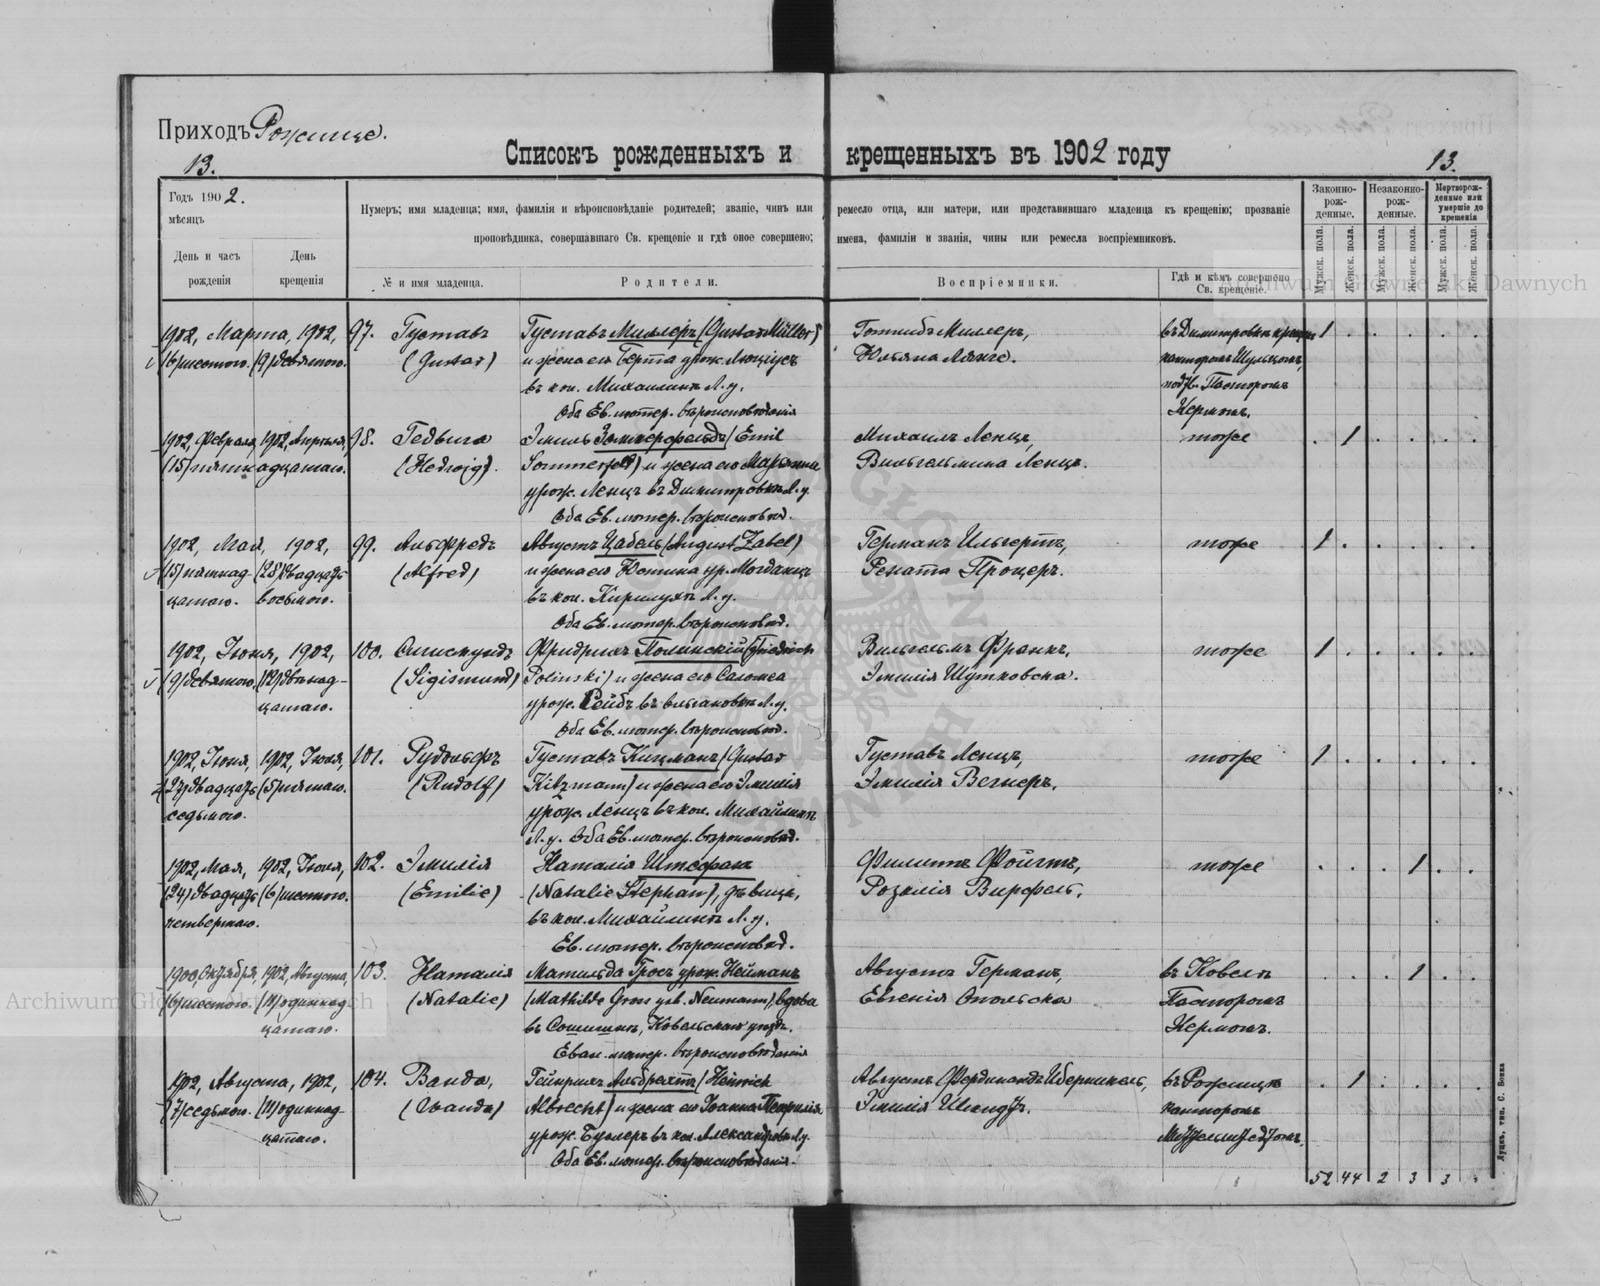 Приходъ Рожище.
13.
Списокъ рожденныхъ и крещенныхъ въ 1902 году
13.
Годъ 1902.
мѣсяцъ
День и часъ рожденія
День крещенія
Нумеръ; имя младенца; имя, фамилія и вѣроисповѣданіе родителей; званіе, чинъ или ремесло отца, или матери, или представившаго младенца къ крещенію; прозваніе
проповѣдника, совершавшаго Св. крещеніе и гдѣ оное совершено; имена, фамиліи и званія, чины или ремесла воспріемниковъ.
№ и имя младенца.
Родители.
Воспріемники.
Гдѣ и кѣмъ совершено Св. крещеніе.
Законно-рож-денные.
Незаконно-рож-денные.
Мертворож-денные или умершіе до крещенія
Мужск. пола.
Женск. пола.
Мужск. пола.
Женск. пола.
Мужск. пола.
Женск. пола.
1902, Марта, 1902, 97. Густавъ Густавъ Миллеръ (Gustav Müller) Готлибъ Миллеръ, въ Димитровкѣ 1
(6) шестого. (9) девятого. (Gustav) и жена его Берта урож. Юльяна Лянге. канторомъ Шульцомъ,
въ кол. Михаилинѣ Л. у. подтв. Пасторомъ
Оба Ев. лютер. вѣроисповѣданія Кермомъ.
1902, Февраля, 1902, Апрѣля, 98. Гедвига Эмиль Зоммерфельдъ (Emil Михаилъ Ленцъ, тоже 1
(15) пятнадцатаго. (Hedwig). Sommerfeld) и жена его Марьянна Вильгельмина Ленцъ.
урож. Ленцъ въ Димитровкѣ Л. у.
Оба Ев. лютер. вѣроисповѣд.
1902, Мая, 1902, 99. Альфредъ Августъ Цабель (August Zabel) Германъ Ильгертъ, тоже 1
(15) пятнад- (28) двадцать (Alfred) и жена его Юстина ур. Рената Процеръ.
цатаго. восьмого. въ кол. Л. у.
Оба Ев. лютер. вѣроисповѣд.
1902, Іюня, 1902, 100. Сигисмундъ Фридрихъ Полинскій (Friedrich Вильгельмъ Франкъ, тоже 1
(9) девятого. (12) двѣнад- (Sigismund) Polinski) и жена его Саломеа Эмилія Шутковска.
цатаго. урож. Сейбъ въ Л. у.
Оба Ев. лютер. вѣроисповѣд.
1902, Іюня, 1902, Іюля, 101. Рудольфъ Густавъ Кицманъ (Gustav Густавъ Ленцъ, тоже 1
(27) двадцать (5) пятаго. (Rudolf) Kitzmann) и жена его Эмилія Эмилія Вегнеръ.
седьмого. урож. Ленцъ въ кол. Михайлинѣ
Л. у. Оба Ев. лютер. вѣроисповѣд.
1902, Мая, 1902, Іюня, 102. Эмилія Наталія Штефанъ Филиппъ Фойгтъ, тоже 1
(24) двадцать (6) шестого. (Emilie) (Natalie Stephan), дѣвица, Розалія Вирфель.
четвертаго. въ кол. Михайлинѣ Л. у.
Ев. лютер. вѣроисповѣд.
1900, Октября, 1902, Августа, 103. Наталія Матильда Гросъ урож. Нейманъ Августъ Германъ, въ Ковелѣ 1
(6) шестого. (11) одиннад- (Natalie) (Mathilde Gros geb. Neumann), вдова Евгенія Опольска Пасторомъ
цатаго. въ Сошишнѣ, Ковельскаго уѣзд. Кермомъ.
Еван. лютер. вѣроисповѣданія
1902, Августа, 1902, 104. Ванда, Гейнрихъ Альбрехтъ (Heinrich Августъ Фердинандъ въ Рожищѣ 1
(7) седьмого. (11) одиннад- (Wanda) Albrecht) и жена его Іоанна Эмилія Шмидтъ. канторомъ
цатаго. урож. въ кол. Александровкѣ Л. у.
Оба Ев. лютер. вѣроисповѣданія.
52 44 2 3 3 .
Луцкъ, тип. С. Бокка
Archiwum Główne Akt Dawnych
Archiwum Główne Akt Dawnych